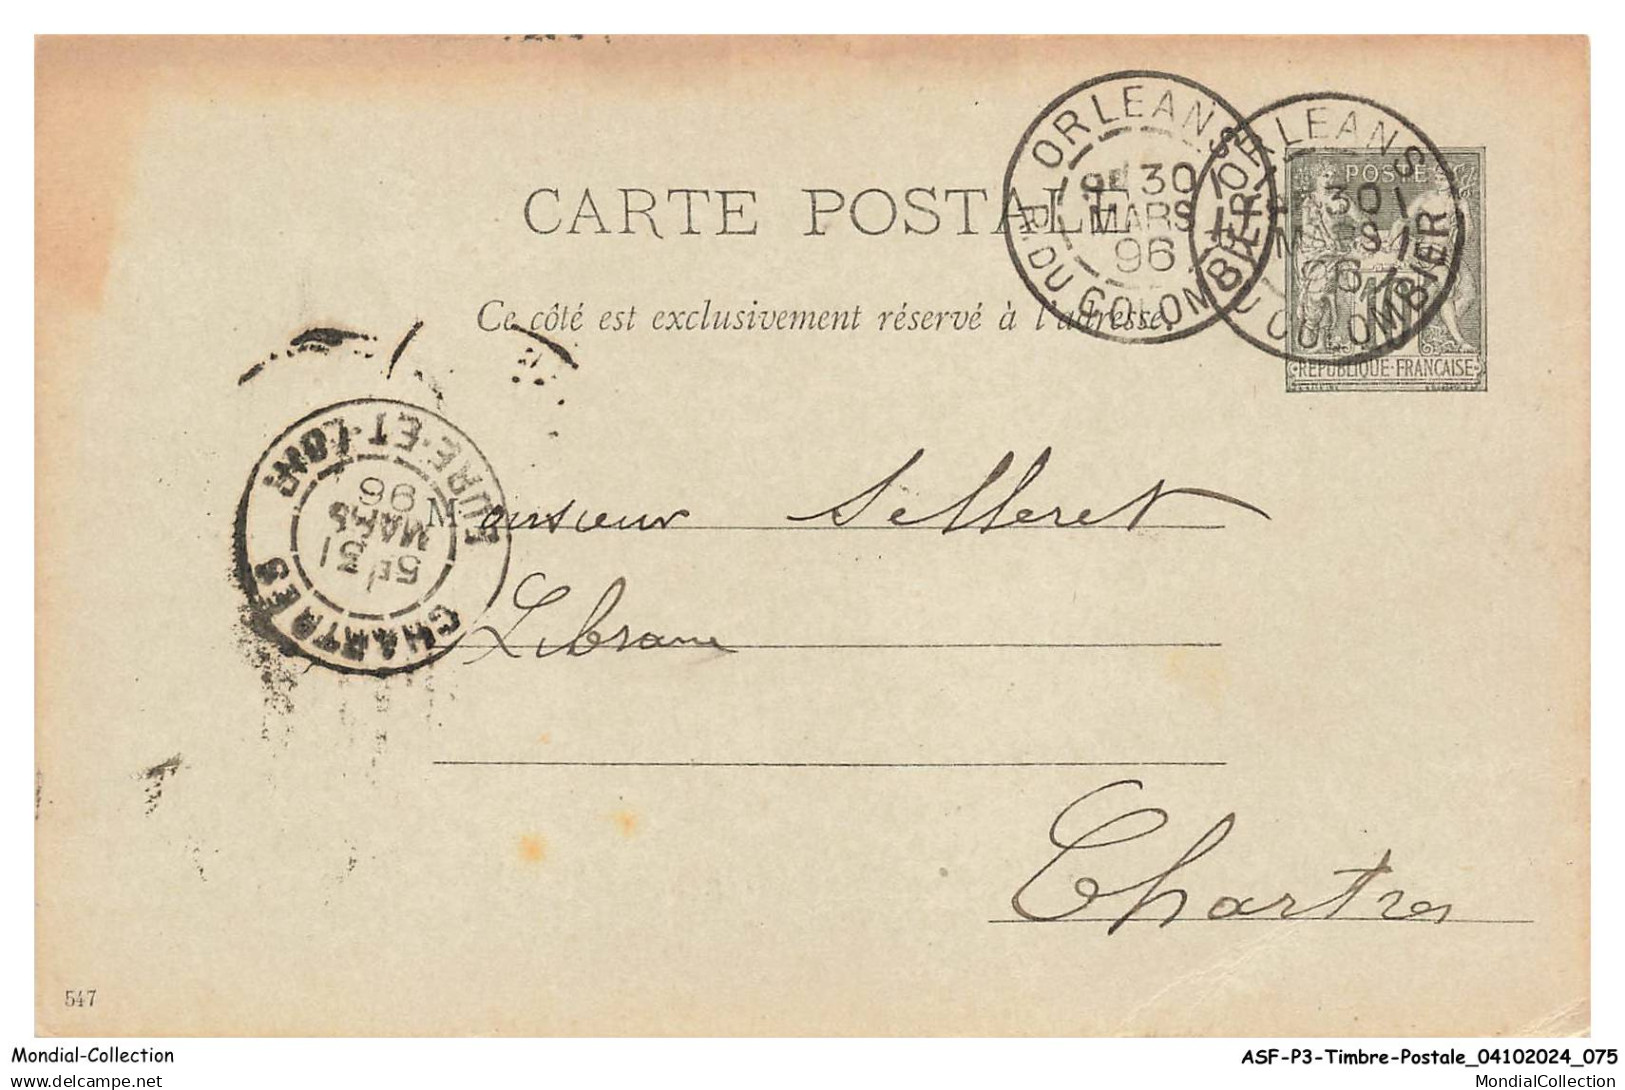 ORLEANS
9E 30
MARS
96
R. DU COLOMBIER
ORLEANS
30
MARS
96
R. DU COLOMBIER
POSTES
REPUBLIQUE·FRANCAISE
CARTE POSTALE
Ce côté est exclusivement réservé à l'adresse.
CHARTRES
5E 31
MARS
96
EURE-ET-LOIR
Monsieur Selleret
Libraire
Chartres
547
Mondial-Collection
ASF-P3-Timbre-Postale_04102024_075
www.delcampe.net
MondialCollection